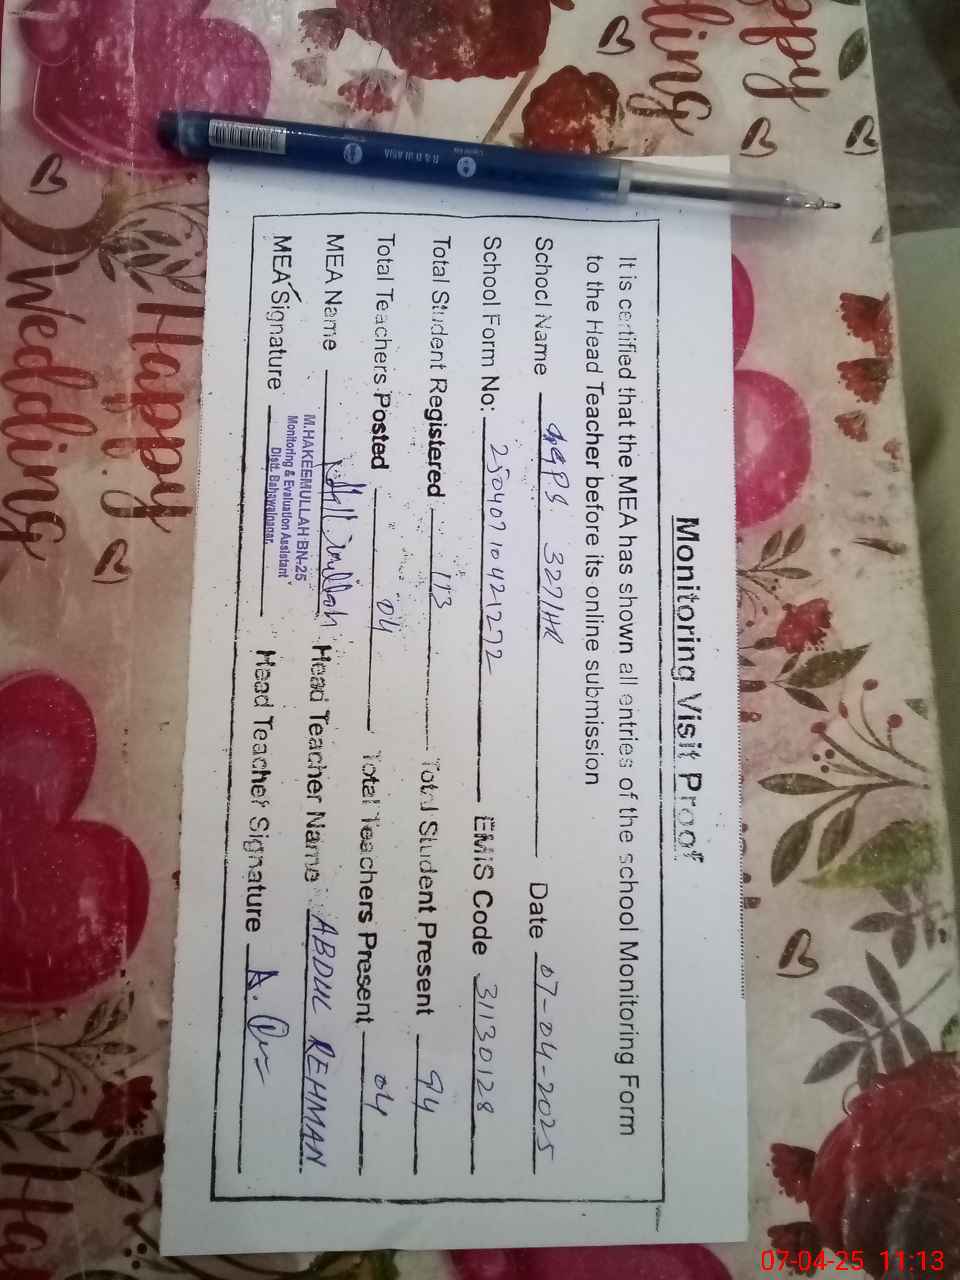 Monitoring Visit Proof
It is certified that the MEA has shown all entries of the school Monitoring Form
to the Head Teacher before its online submission
School Name GGPS 327/HR Date 07-04-2025
School Form No: 25040710421272 EMIS Code 31130128
Total Student Registered 113 Total Student Present 94
Total Teachers Posted 04 Total Teachers Present 04
MEA Name Head Teacher Name ABDUL REHMAN
M.HAKEEMULLAH BN-25
Monitoring & Evaluation Assistant
Distt. Bahawalnagar.
MEA Signature Head Teacher Signature A.
Happy
Wedding
07-04-25 11:13